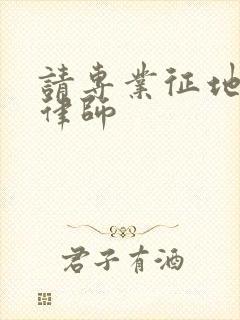 請專業征地
律師
君子有酒